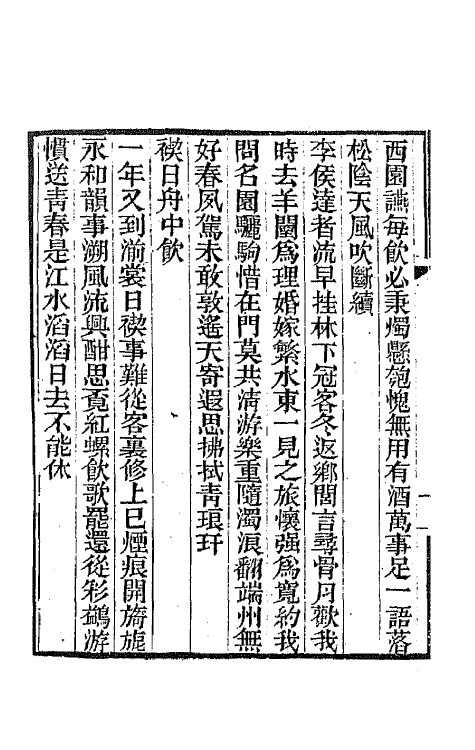 西園讌每飲必秉燭懸匏愧無用有酒萬事足一語落
松陰天風吹斷續
李侯達者流早挂林下冠客冬返鄉閭言尋骨肉歡我
時去羊闉爲理婚嫁繁水東一見之旅懷强爲寬約我
問名園驪駒惜在門莫共淸游樂重隨濁浪翻端州無
好春夙駕未敢敦遙天寄遐思拂拭靑琅玕
禊日舟中飲
一年又到湔裳日禊事難從客裏修上巳煙痕開旖旎
永和韻事溯風流興酣思覓紅螺飲歌罷還從彩鷁游
慣送靑春是江水滔滔日去不能休